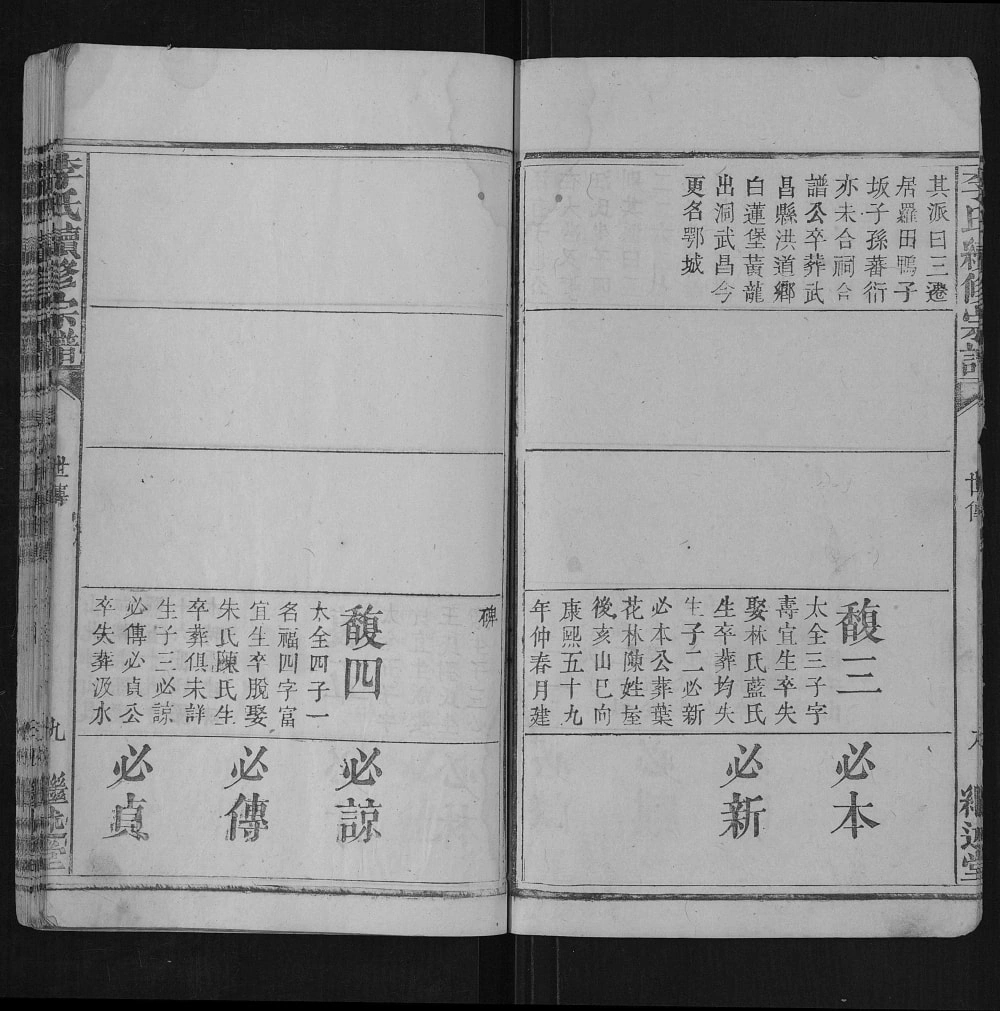 李氏續修宗譜
世傳
繼述堂
其派曰三遷
居羅田鴨子
坂子孫蕃衍
亦未合祠合
譜公卒葬武
昌縣洪道鄉
白蓮堡黃龍
出洞武昌今
更名鄂城
馥三
太全三子字
壽宜生卒失
娶林氏藍氏
生卒葬均失
生子二必新
必本公葬葉
花林陳姓屋
後亥山巳向
康熙五十九
年仲春月建
必本
必新
碑
馥四
太全四子一
名福四字富
宜生卒脫娶
朱氏陳氏生
卒葬俱未詳
生子三必諒
必傳必貞公
卒失葬汲水
必諒
必傳
必貞
李氏續修宗譜
世傳
九
繼述堂